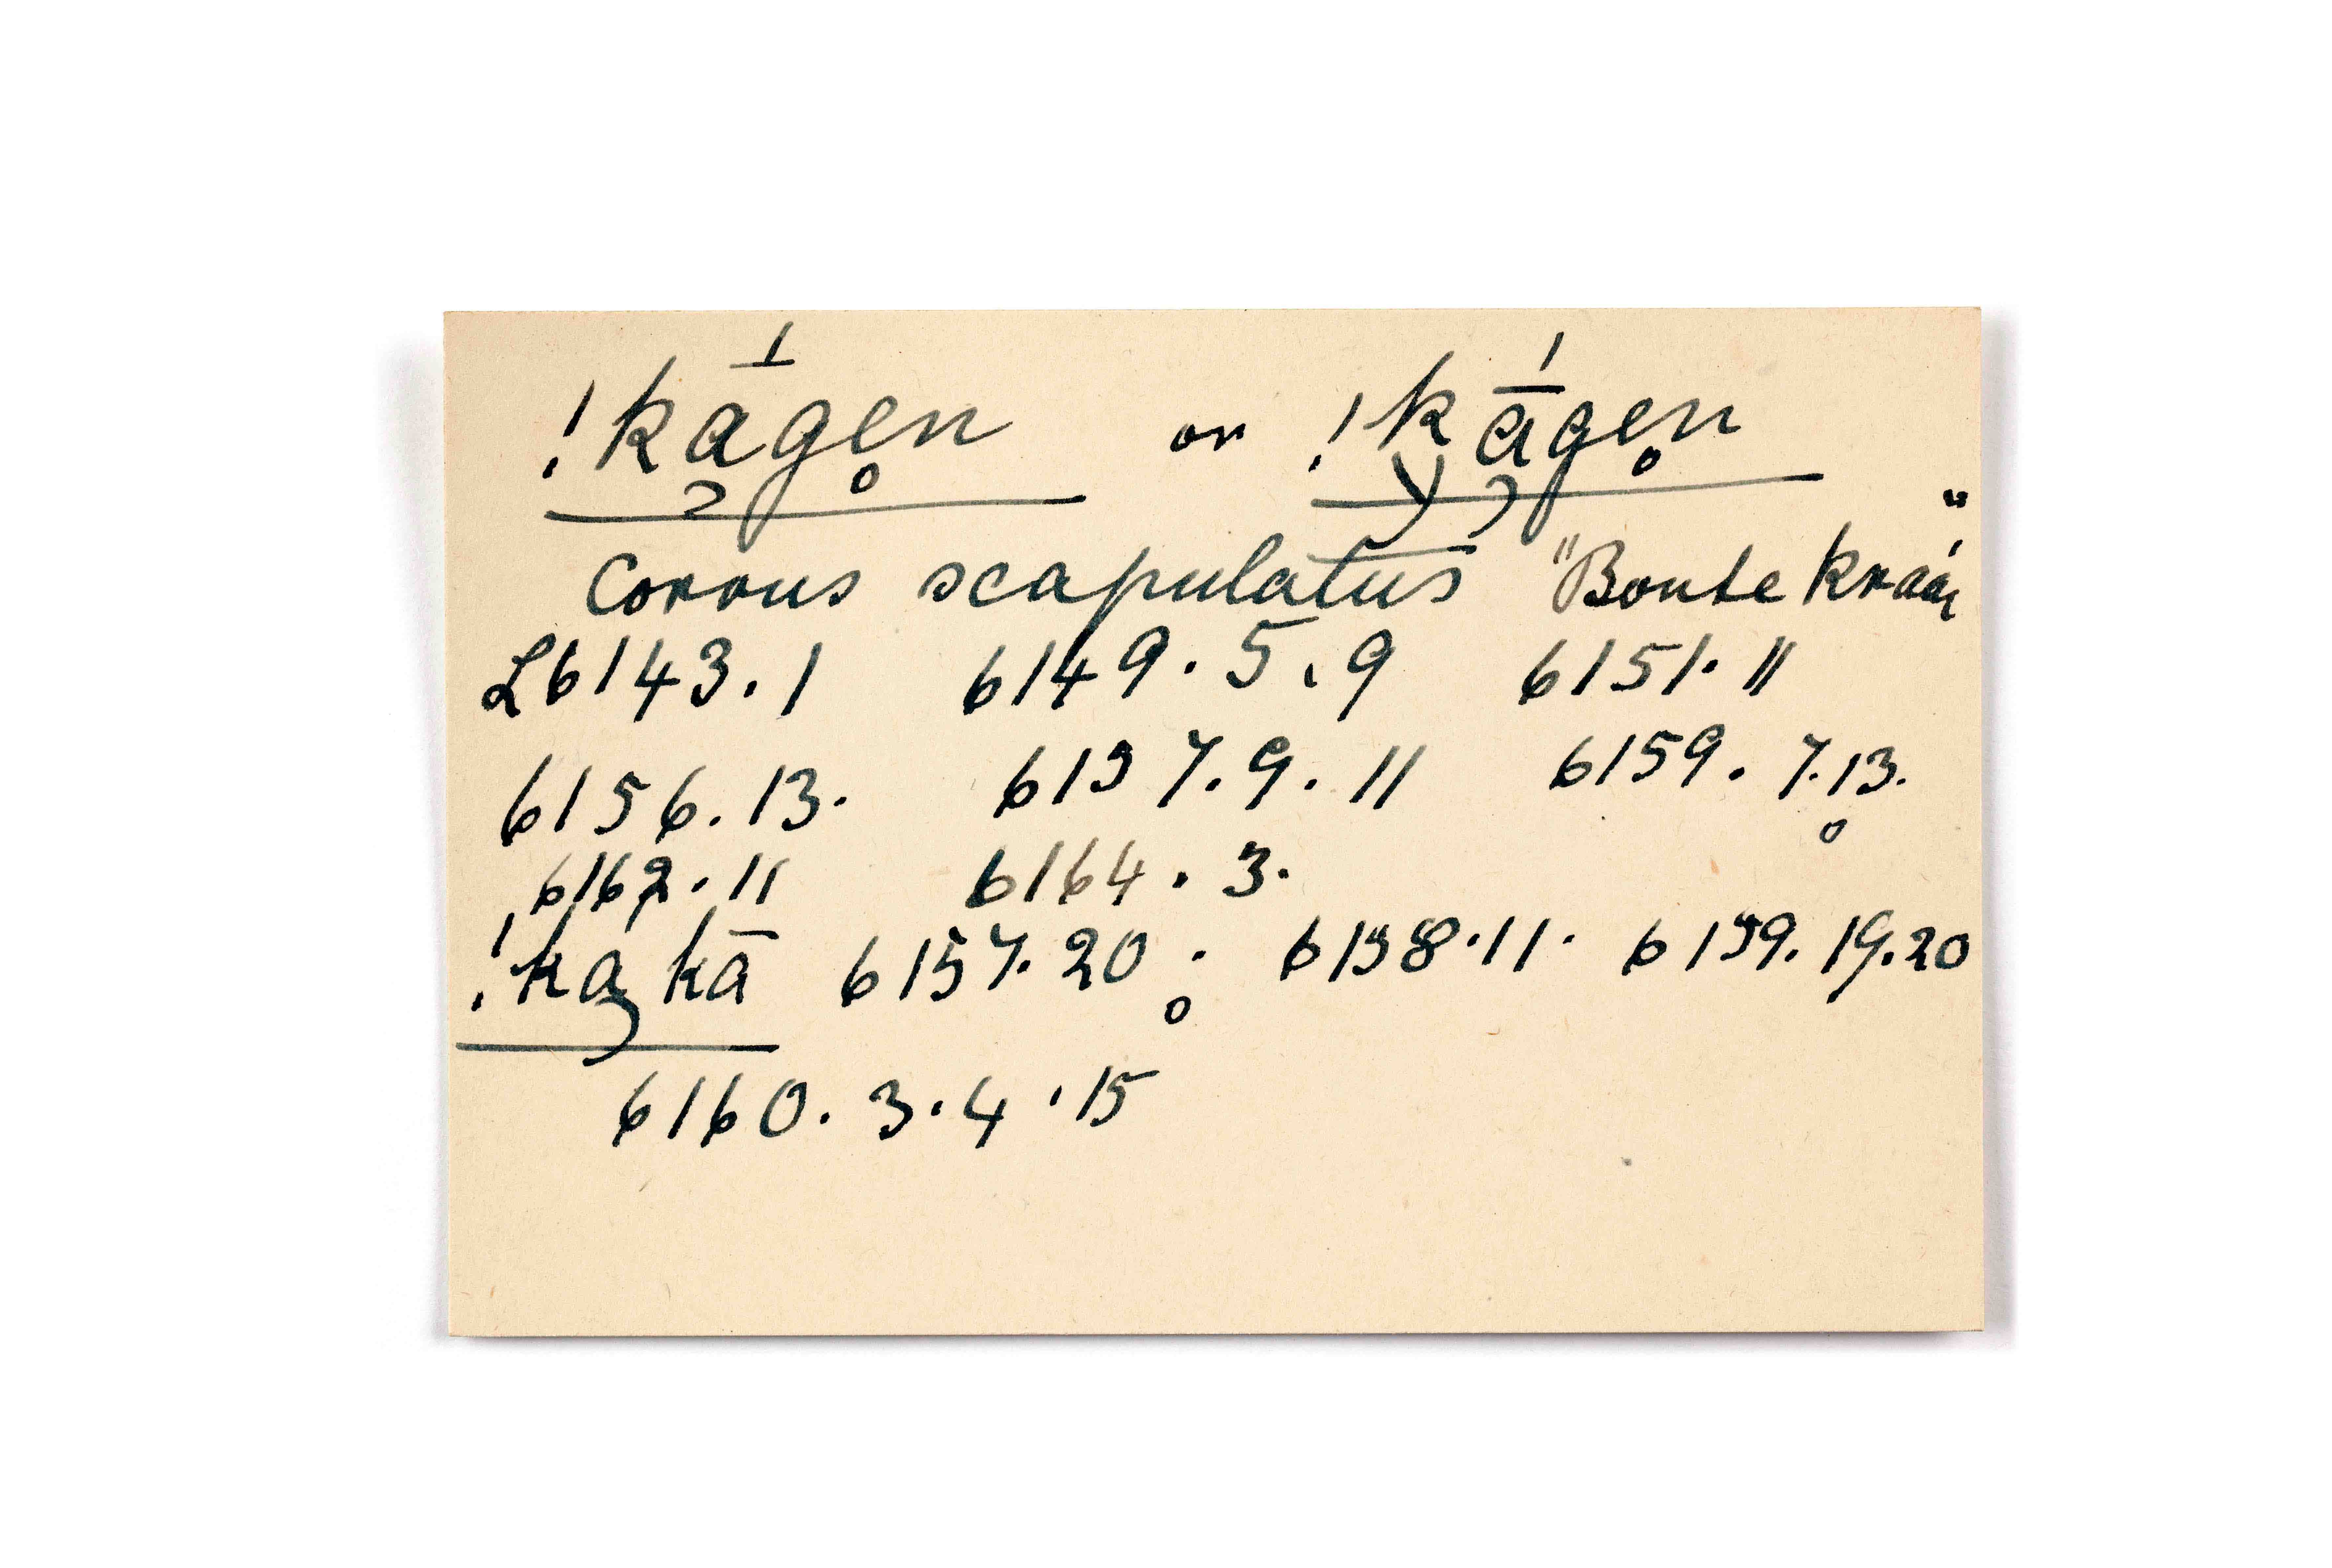 !kā́gen̥ or !kā́gen̥
Corvus scapulatus "Bonte Kraai"
L6143.1 6149.5.9 6151.11
6156.13. 6157.9.11 6159.7.13.
6162.11 6164.3.
!kakā 6157.20. 6158.11. 6159.19.20
6160.3.4.15